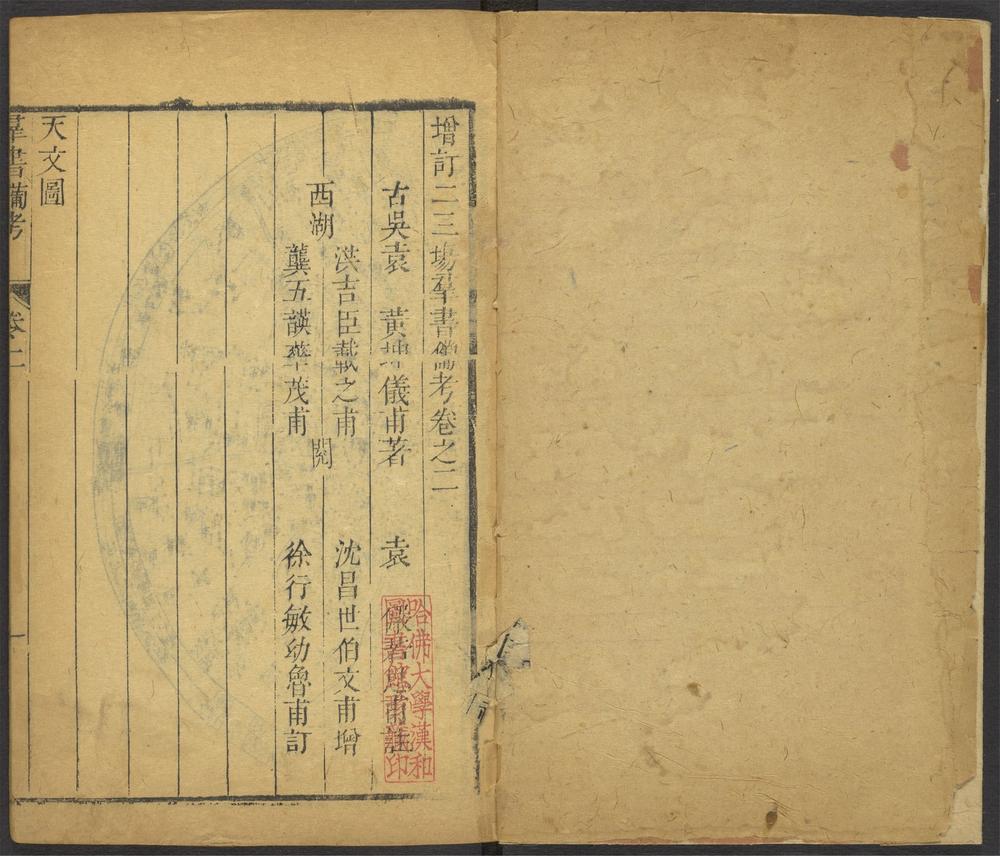 增訂二三場羣書備考卷之二
古吳袁　黃坤儀甫著　袁　儼若思甫註
西湖
洪吉臣載之甫　沈昌世伯文甫增
龔五韺華茂甫　徐行敏幼魯甫訂
閱
天文圖
羣書備考　卷二　一
哈佛大學漢和
圖書館珍藏印